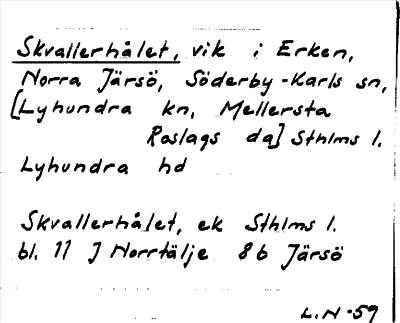 Skvallerhålet, vik i Erken,
Norra Järsö, Söderby-Karls sn,
[Lyhundra kn, Mellersta
Roslags da] Sthlms l.
Lyhundra hd
Skvallerhålet, ek Sthlms l.
bl. 11 J Norrtälje 8b Järsö
L.N-59